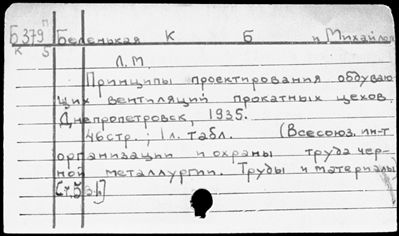 Б379 п Беленькая К Б и Михайлов
к 5
Л.М
Принципы проектирования обдуваю-
щих вентиляций прокатных цехов.
Днепропетровск, 1935.
46стр., 1л. табл. (Всесоюз. ин-т
организации и охраны труда чер-
ной металлургии. Труды и материалы
[т.5 в.1]